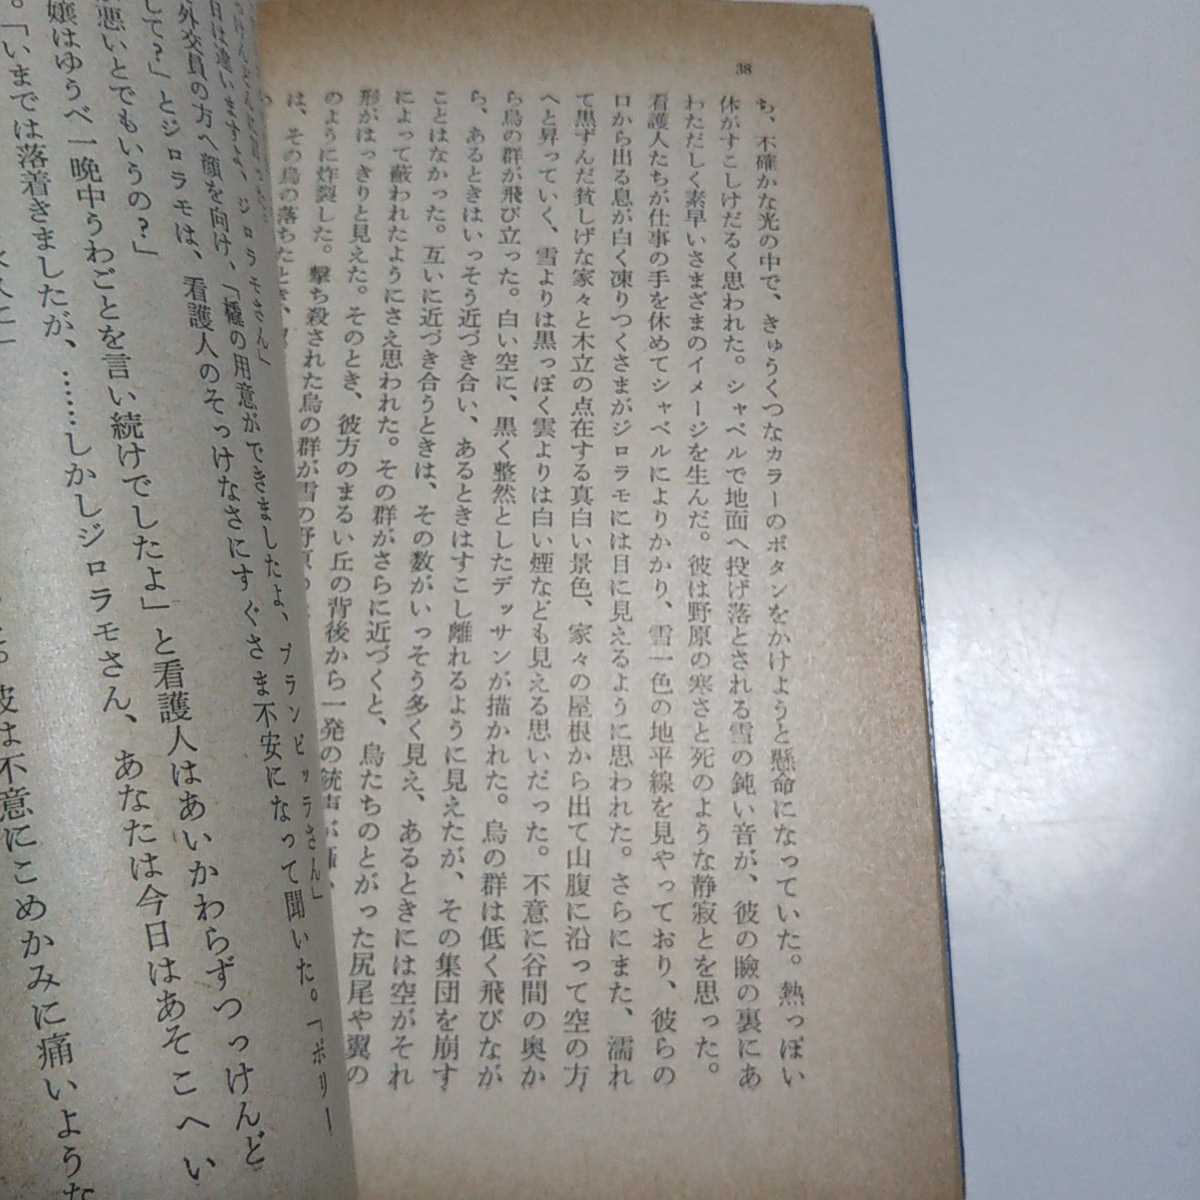 38
ち、不確かな光の中で、きゅうくつなカラーのボタンをかけようと懸命になっていた。熱っぽい
体がすこしけだるく思われた。シャベルで地面へ投げ落とされる雪の鈍い音が、彼の瞼の裏にあ
わただしく素早いさまざまのイメージを生んだ。彼は野原の寒さと死のような静寂とを思った。
看護人たちが仕事の手を休めてシャベルによりかかり、雪一色の地平線を見やっており、彼らの
口から出る息が白く凍りつくさまがジロラモには目に見えるように思われた。さらにまた、濡れ
て黒ずんだ貧しげな家々と木立の点在する真白い景色、家々の屋根から出て山腹に沿って空の方
へと昇っていく、雪よりは黒っぽく雲よりは白い煙なども見える思いだった。不意に谷間の奥か
ら鳥の群が飛び立った。白い空に、黒く整然としたデッサンが描かれた。鳥の群は低く飛びなが
ら、あるときはいっそう近づき合い、あるときはすこし離れるように見えたが、その集団を崩す
ことはなかった。互いに近づき合うときは、その数がいっそう多く見え、あるときには空がそれ
によって蔽われたようにさえ思われた。その群がさらに近づくと、鳥たちのとがった尻尾や翼の
形がはっきりと見えた。そのとき、彼方のまるい丘の背後から一発の銃声が
のように炸裂した。撃ち殺された鳥の群が雪の野原
は、その鳥の落ちたとき、
日は違いますよ、ジロラモさん」
外交員の方へ顔を向け、「橇の用意ができましたよ、ブランビッラさん」
して？」とジロラモは、看護人のそっけなさにすぐさま不安になって聞いた。「ポリー
悪いとでもいうの？」
嬢はゆうべ一晩中うわごとを言い続けでしたよ」と看護人はあいかわらずつっけんど
。「いまでは落着きましたが、……しかしジロラモさん、あなたは今日はあそこへい
彼は不意にこめかみに痛いような